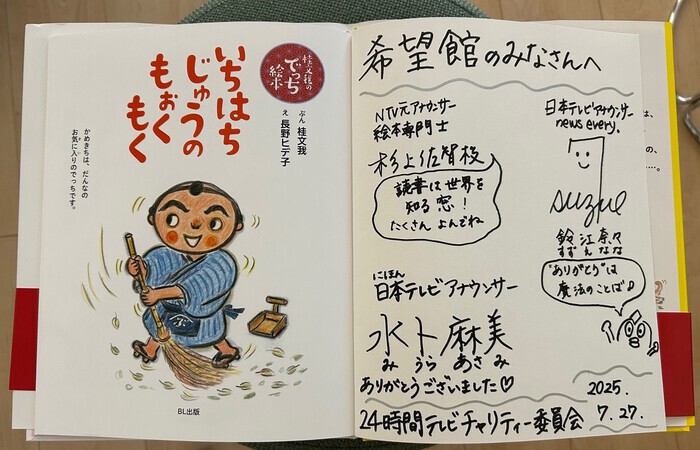 桂文我の
でっち
絵本
いちはち
じゅうの
もぉく
もく
ぶん 桂文我
え 長野ヒデ子
かめきちは、だんなの
お気に入りのでっちです。
BL出版
希望館のみなさんへ
NTV元アナウンサー
絵本専門士
杉上佐智枝
読書は世界を
知る窓!
たくさん よんでね
日本テレビアナウンサー
news every.
suzue
鈴江奈々
すずえなな
"ありがとう"は
魔法のことば♪
にほん
日本テレビアナウンサー
水卜麻美
みうらあさみ
ありがとうございました♡
2025.
7.27.
24時間テレビチャリティー委員会